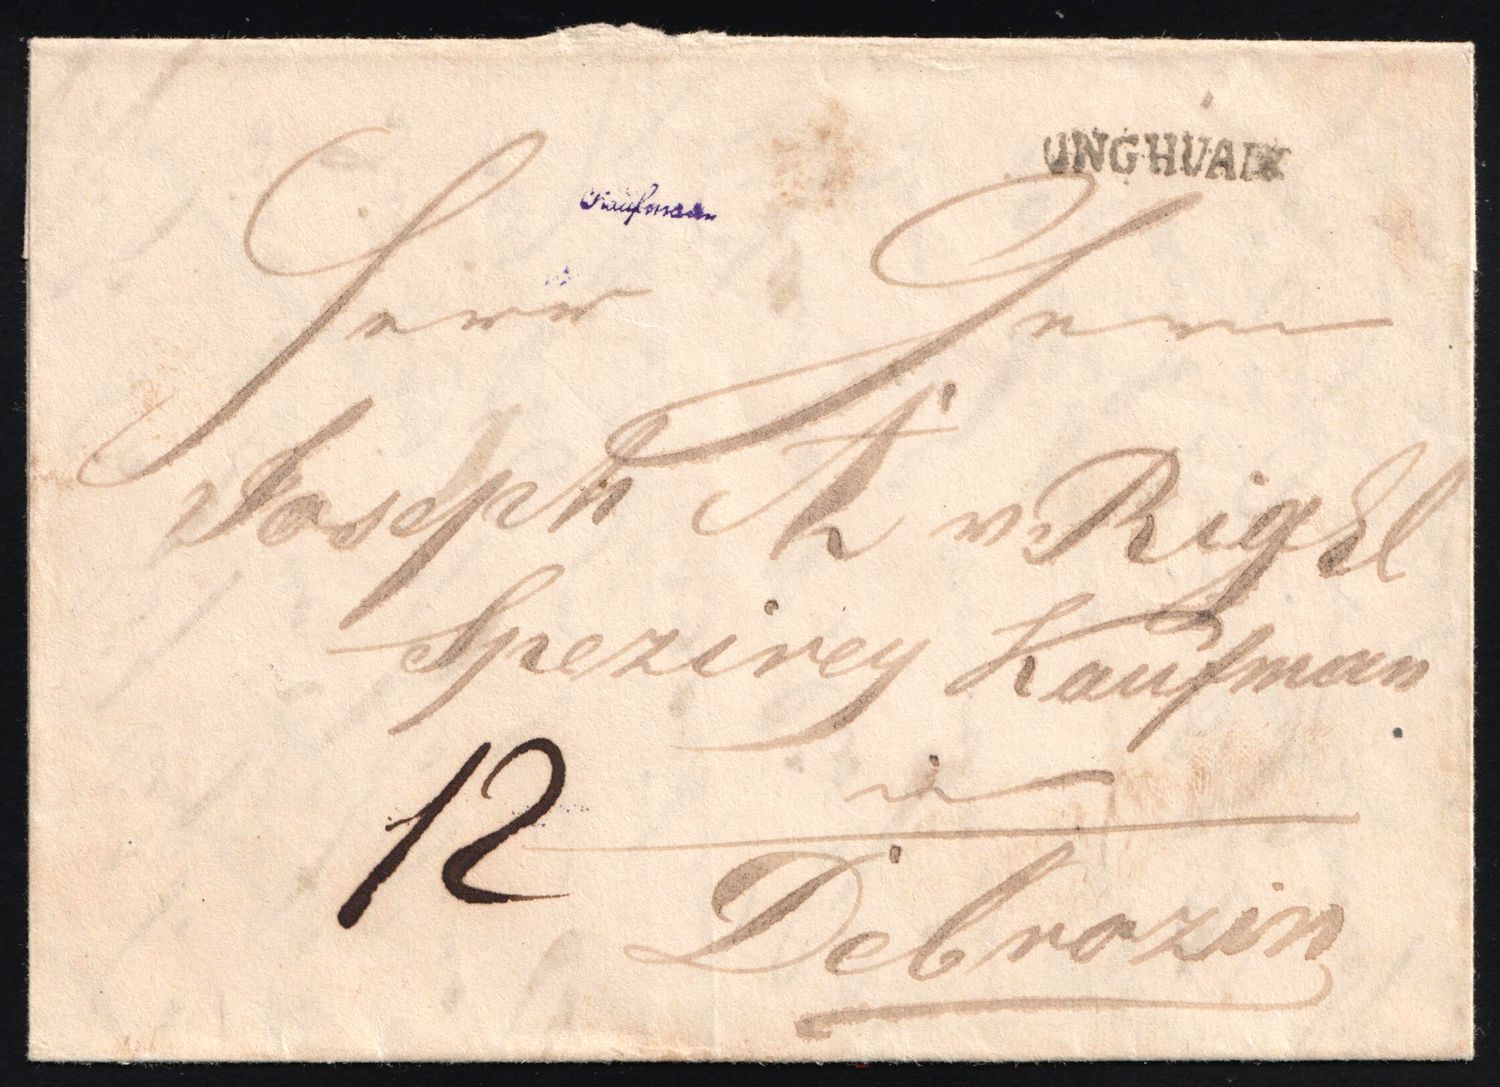 UNGHVAR
Kaufman
Herr Herrn
Joseph A v Rigel
Spezirey Kaufman
in
12
Debrozin